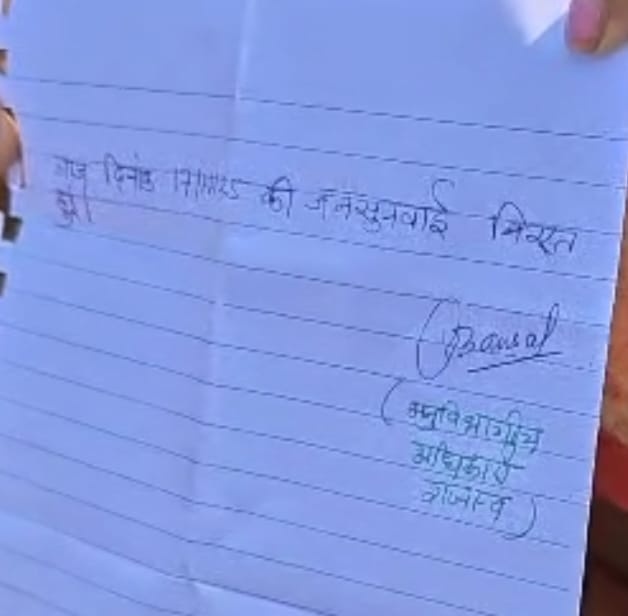 आज दिनांक 17/11/25 की जनसुनवाई निरस्त
हो।
Bansal
(अनुविभागीय
अधिकारी
राजस्व)